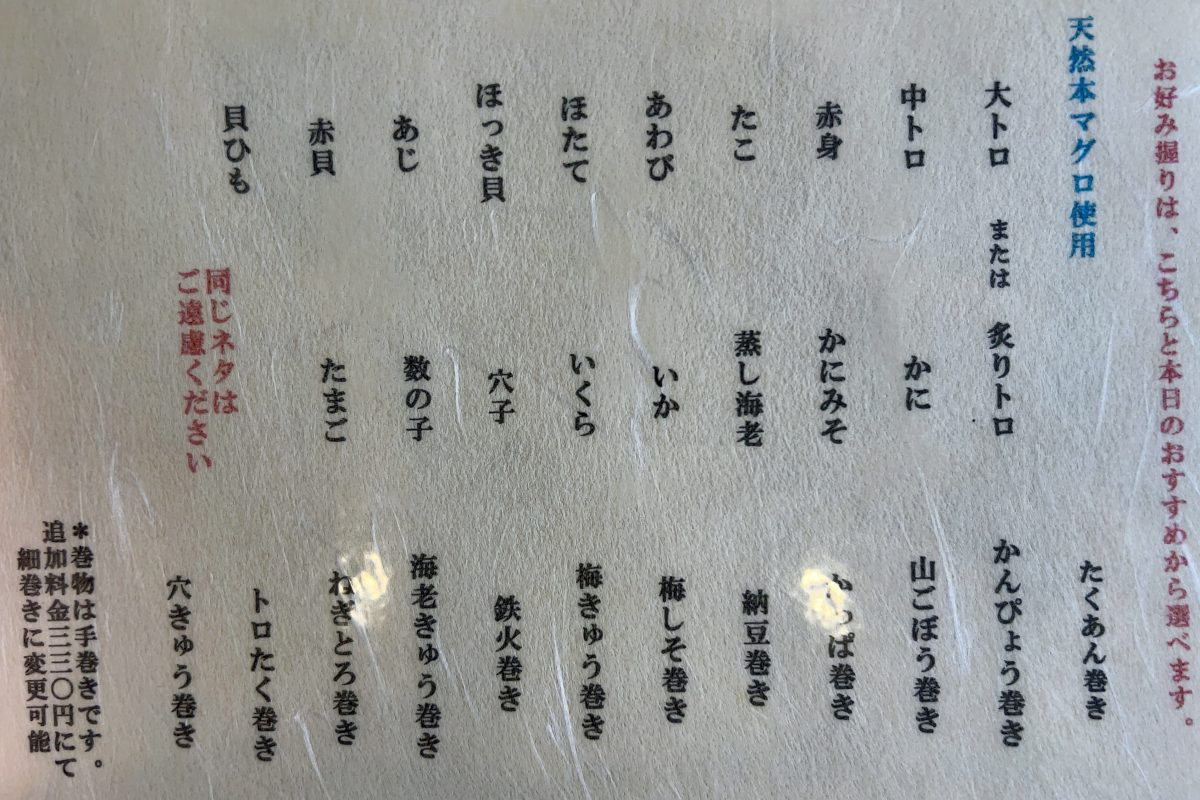 お好み握りは、こちらと本日のおすすめから選べます。
天然本マグロ使用
大トロ または 炙りトロ
中トロ
赤身
たこ
あわび
ほたて
ほっき貝
あじ
赤貝
貝ひも
かに
かにみそ
蒸し海老
いか
いくら
穴子
数の子
たまご
同じネタは
ご遠慮ください
たくあん巻き
かんぴょう巻き
山ごぼう巻き
かっぱ巻き
納豆巻き
梅しそ巻き
梅きゅう巻き
鉄火巻き
海老きゅう巻き
ねぎとろ巻き
トロたく巻き
穴きゅう巻き
*巻物は手巻きです。
追加料金三三〇円にて
細巻きに変更可能